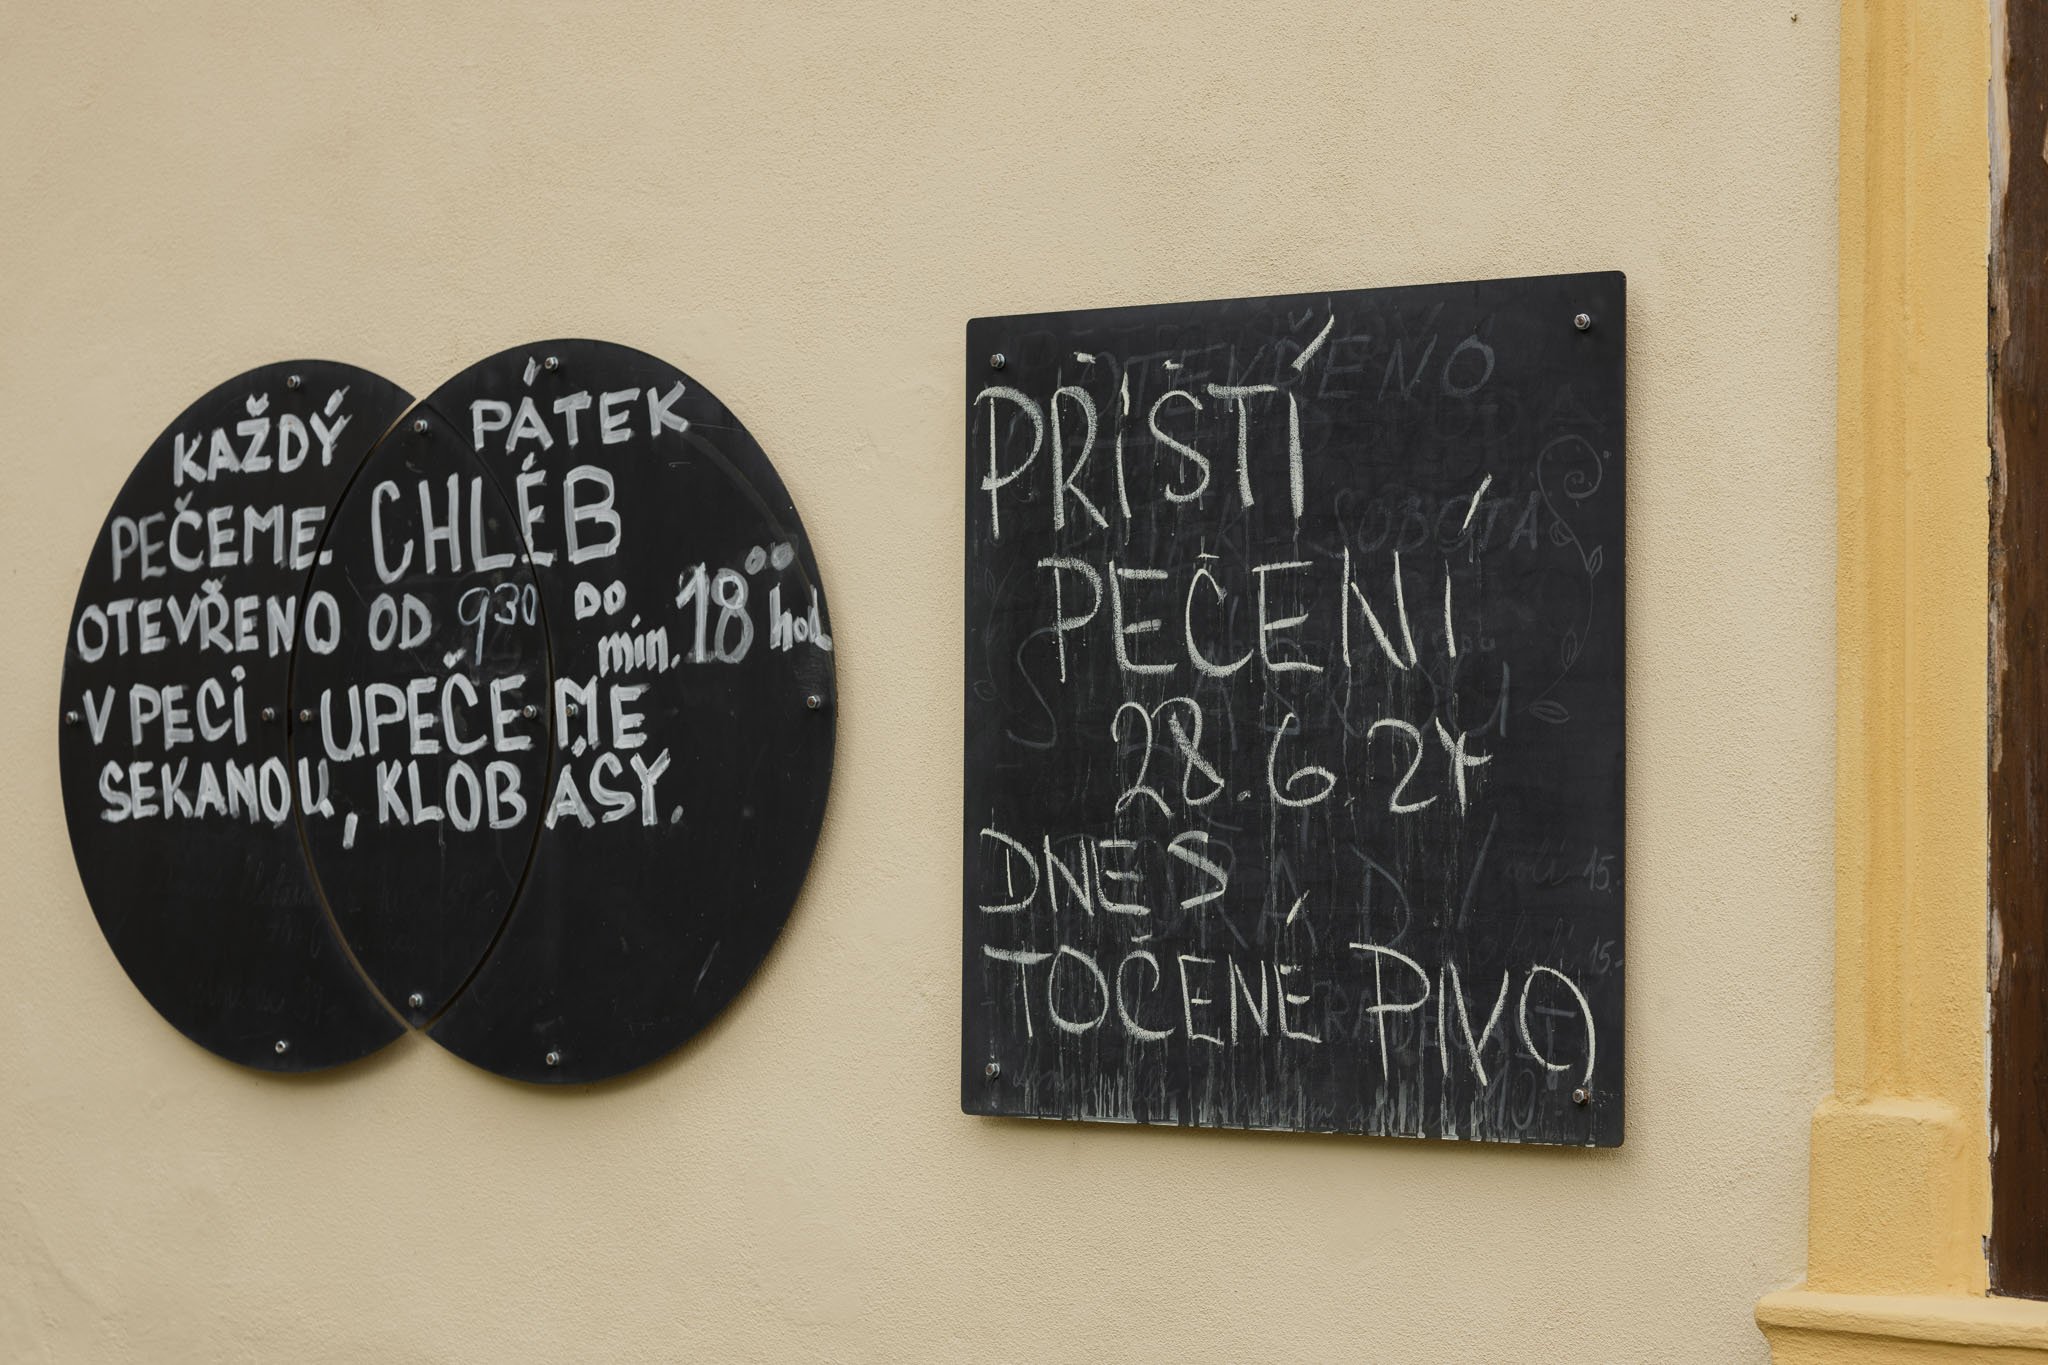 KAŽDÝ PÁTEK
PEČEME CHLÉB
OTEVŘENO OD 9³⁰ DO min. 18⁰⁰ hod.
V PECI UPEČEME
SEKANOU, KLOBÁSY.
PŘÍSTÍ
PEČENÍ
28.6.24
DNES
TOČENÉ PIVO
OTEVŘENO
SOBOTA